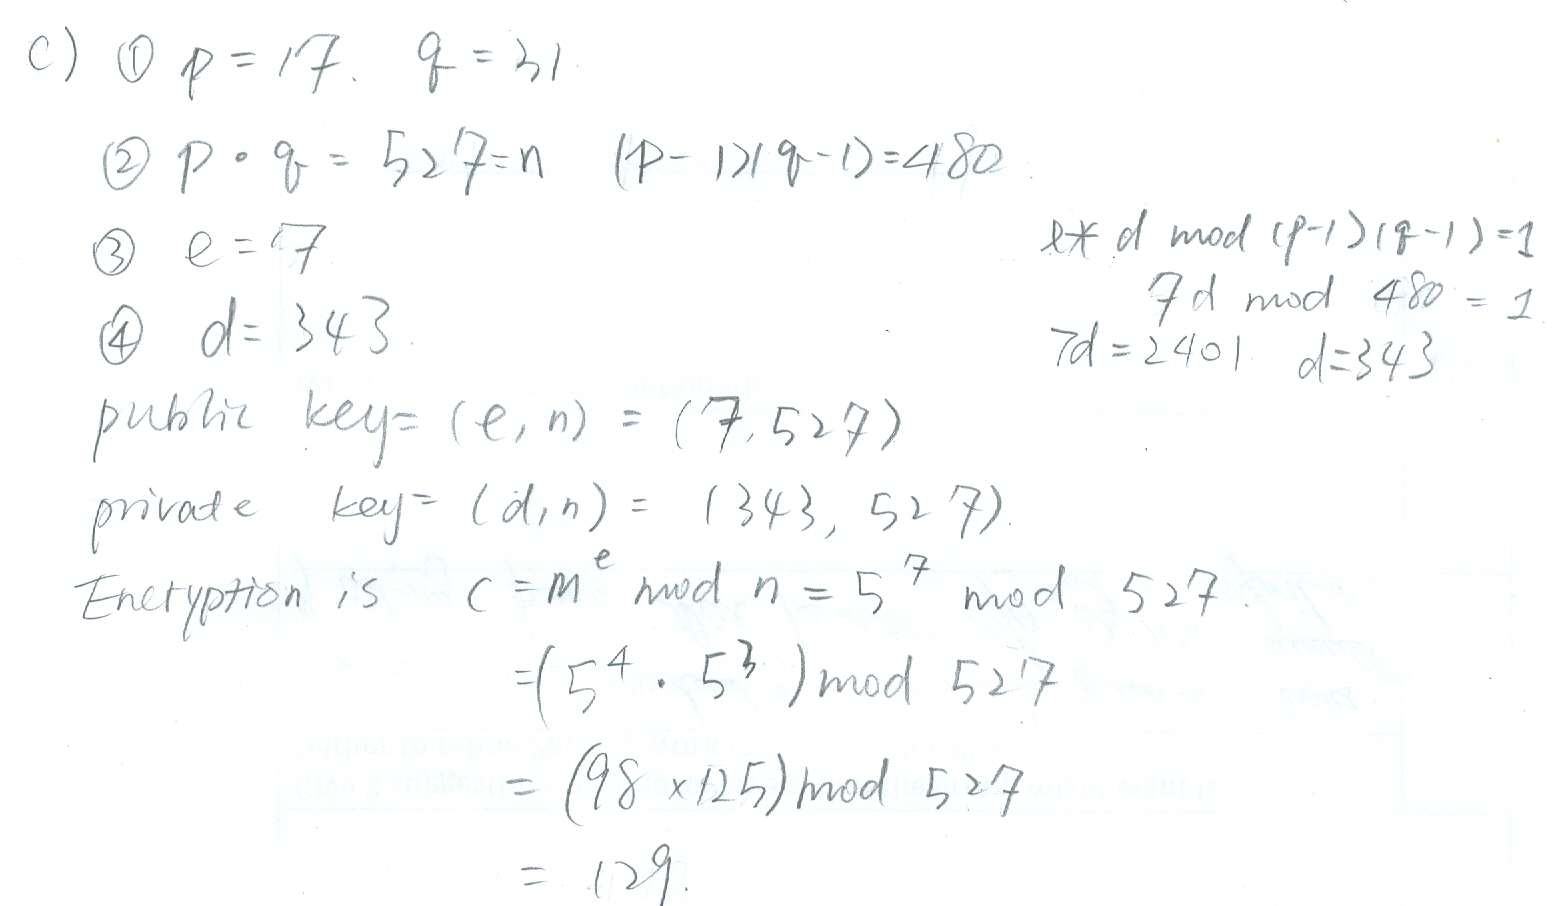 c) ① p = 17. q = 31
② p • q = 527 = n (p-1)(q-1) = 480
③ e = 7
④ d = 343.
e * d mod (p-1)(q-1) = 1
7d mod 480 = 1
7d = 2401 d = 343
public key = (e, n) = (7, 527)
private key = (d, n) = (343, 527).
Encryption is c = m^e mod n = 5^7 mod 527.
= (5^4 . 5^3) mod 527
= (98 × 125) mod 527
= 129.